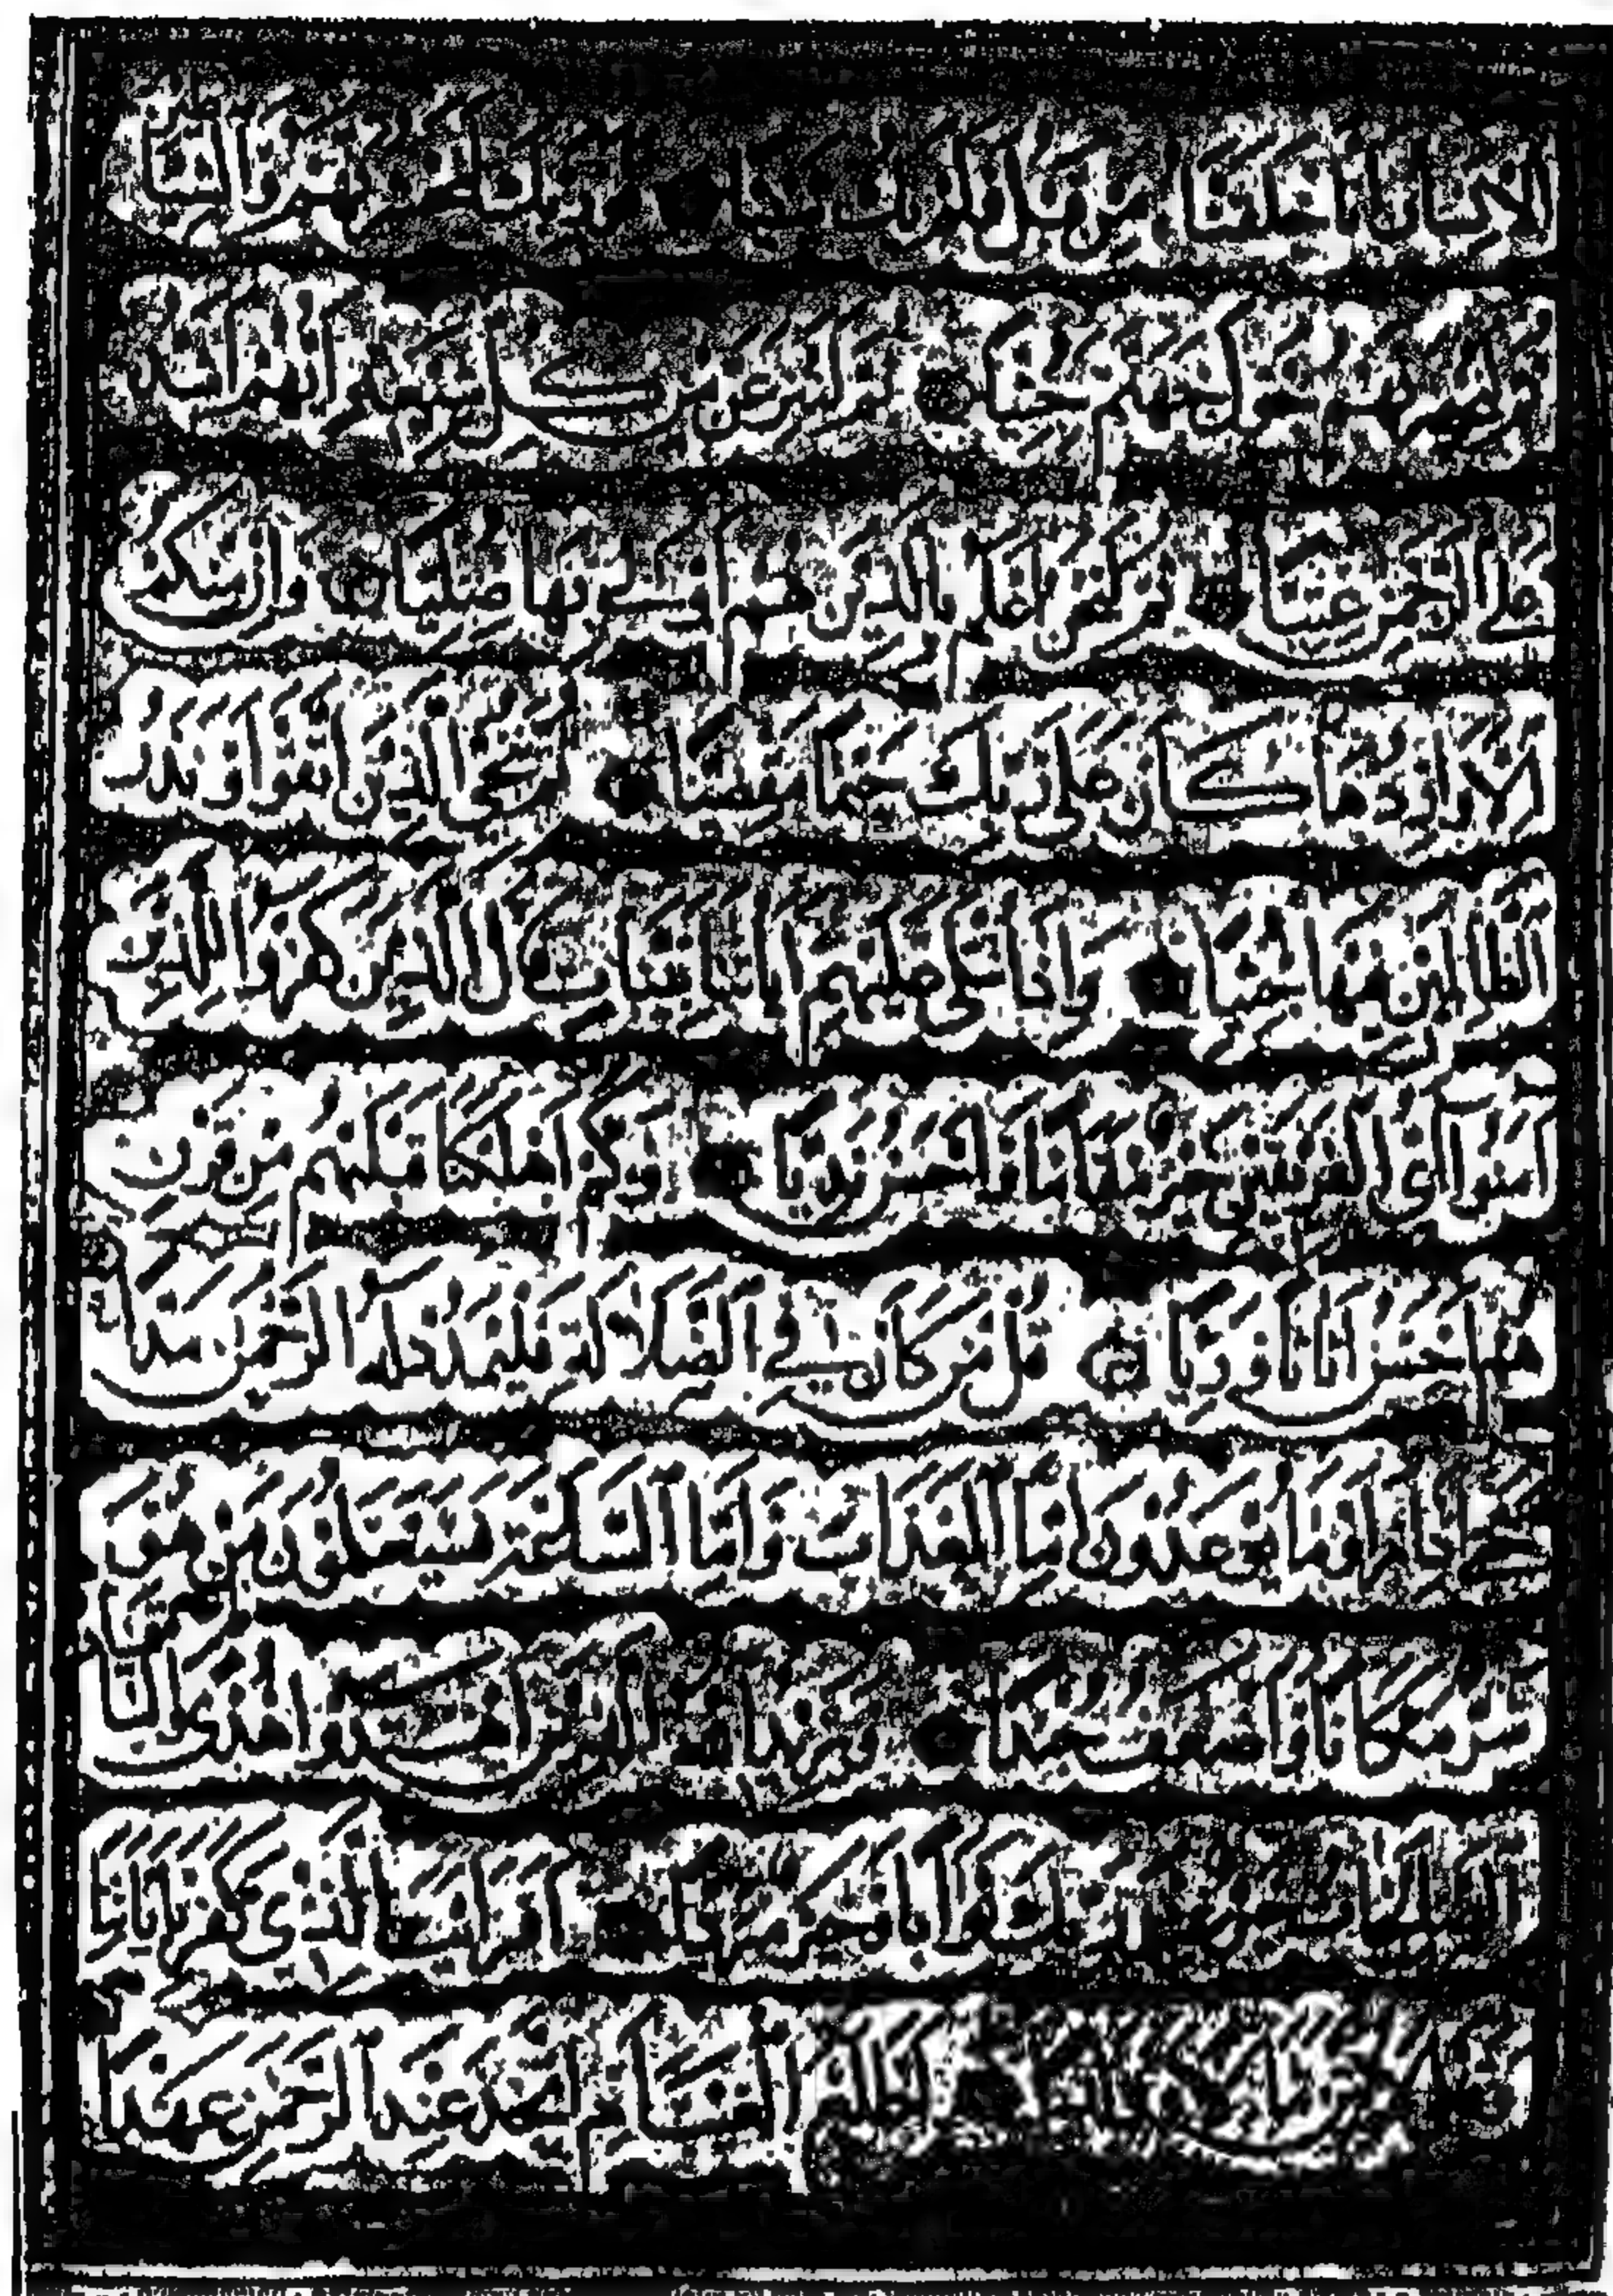 الانسان انا خلقناه من قبل ولم يك شيئا فوربك لنحشرنهم والشياطين
ثم لنحضرنهم حول جهنم جثيا ثم لننزعن من كل شيعة ايهم اشد
على الرحمن عتيا ثم لنحن اعلم بالذين هم اولى بها صليا وان منكم
الا واردها كان على ربك حتما مقضيا ثم ننجي الذين اتقوا ونذر
الظالمين فيها جثيا واذا تتلى عليهم اياتنا بينات قال الذين كفروا للذين
امنوا اي الفريقين خير مقاما واحسن نديا وكم اهلكنا قبلهم من قرن
هم احسن اثاثا ورئيا قل من كان في الضلالة فليمدد له الرحمن مدا
حتى اذا راوا ما يوعدون اما العذاب واما الساعة فسيعلمون من هو شر
مكانا واضعف جندا ويزيد الله الذين اهتدوا هدى والباقيات
الصالحات خير عند ربك ثوابا وخير مردا افرايت الذي كفر باياتنا
وقال لاوتين مالا وولدا اطلع الغيب ام اتخذ عند الرحمن عهدا